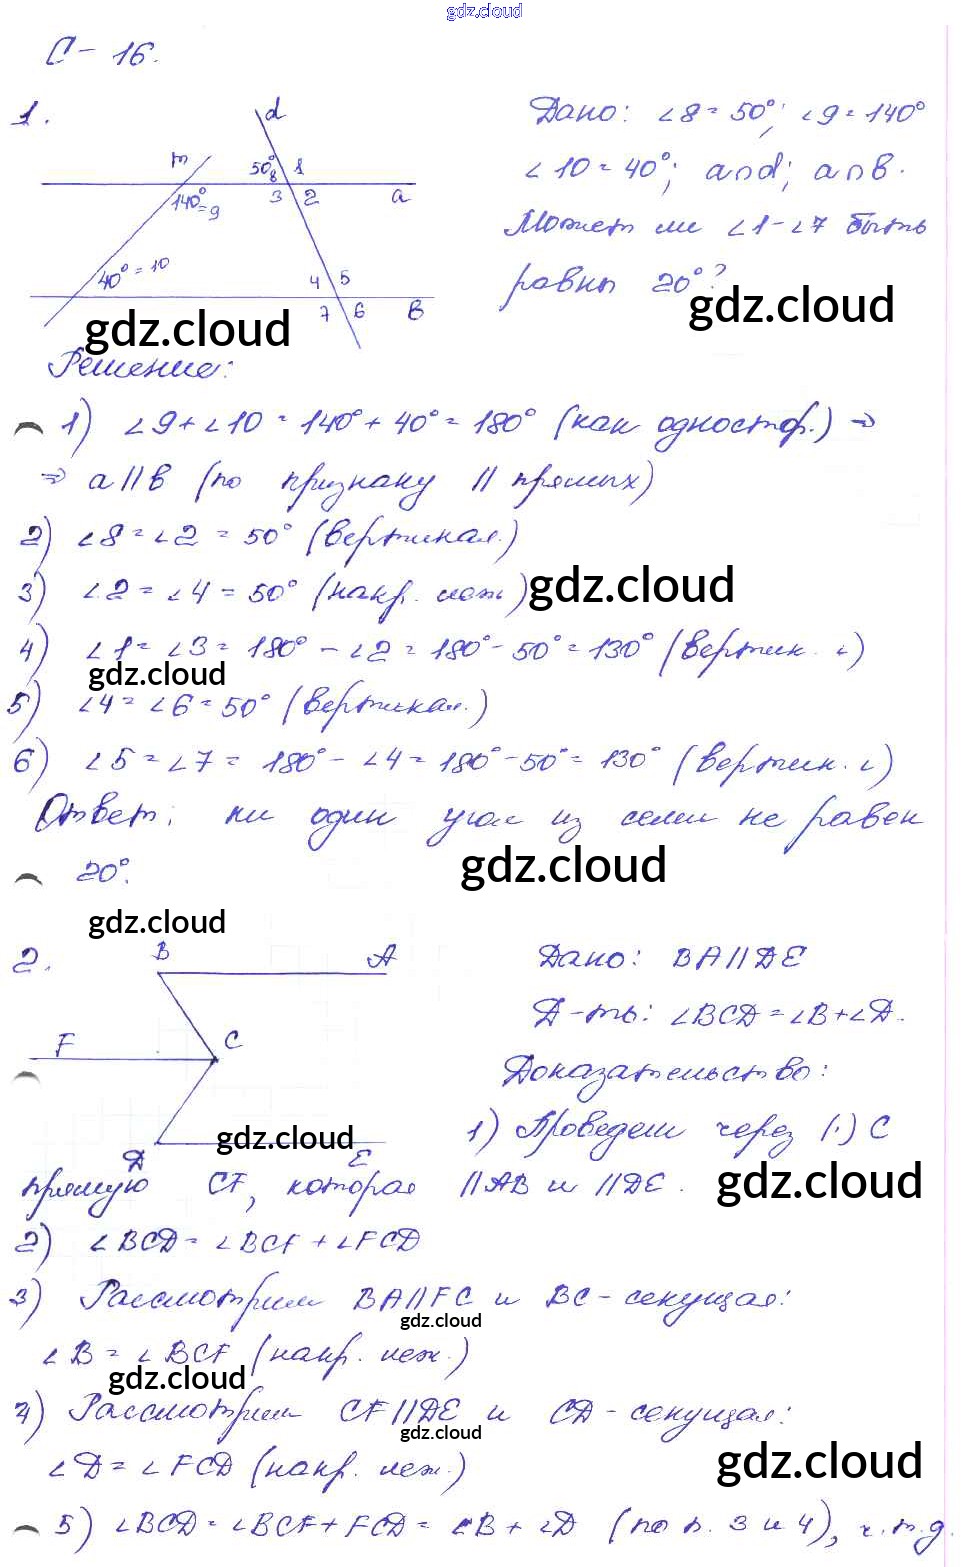 gdz.cloud
С-16.
1.
d
m
50°
8
1
140°=9
3
2
a
40°=10
4
5
7
6
В
Дано: ∠8=50°; ∠9=140°
∠10=40°; a∩d; a∩в.
Может ли ∠1-∠7 быть
равны 20°?
gdz.cloud
gdz.cloud
Решение:
1) ∠9+∠10=140°+40°=180° (как одностор.) ⇒
⇒ a||в (по признаку || прямых)
2) ∠8=∠2=50° (вертикал.)
3) ∠2=∠4=50° (накр. леж.)
gdz.cloud
4) ∠1=∠3=180°-∠2=180°-50°=130° (вертик. ∠)
gdz.cloud
5) ∠4=∠6=50° (вертикал.)
6) ∠5=∠7=180°-∠4=180°-50°=130° (вертик. ∠)
Ответ: ни один угол из семи не равен
20°.
gdz.cloud
gdz.cloud
2.
B
A
F
C
Д
E
Дано: BA||ДE
Д-ть: ∠BCД=∠B+∠Д.
Доказательство:
1) Проведем через (·) C
gdz.cloud
gdz.cloud
прямую CF, которая ||AB и ||ДE.
2) ∠BCД=∠BCF+∠FCД
3) Рассмотрим BA||FC и BC-секущая:
gdz.cloud
∠B=∠BCF (накр. леж.)
gdz.cloud
4) Рассмотрим CF||ДE и CД-секущая:
gdz.cloud
gdz.cloud
∠Д=∠FCД (накр. леж.)
5) ∠BCД=∠BCF+FCД=∠B+∠Д (по п. 3 и 4), ч.т.д.